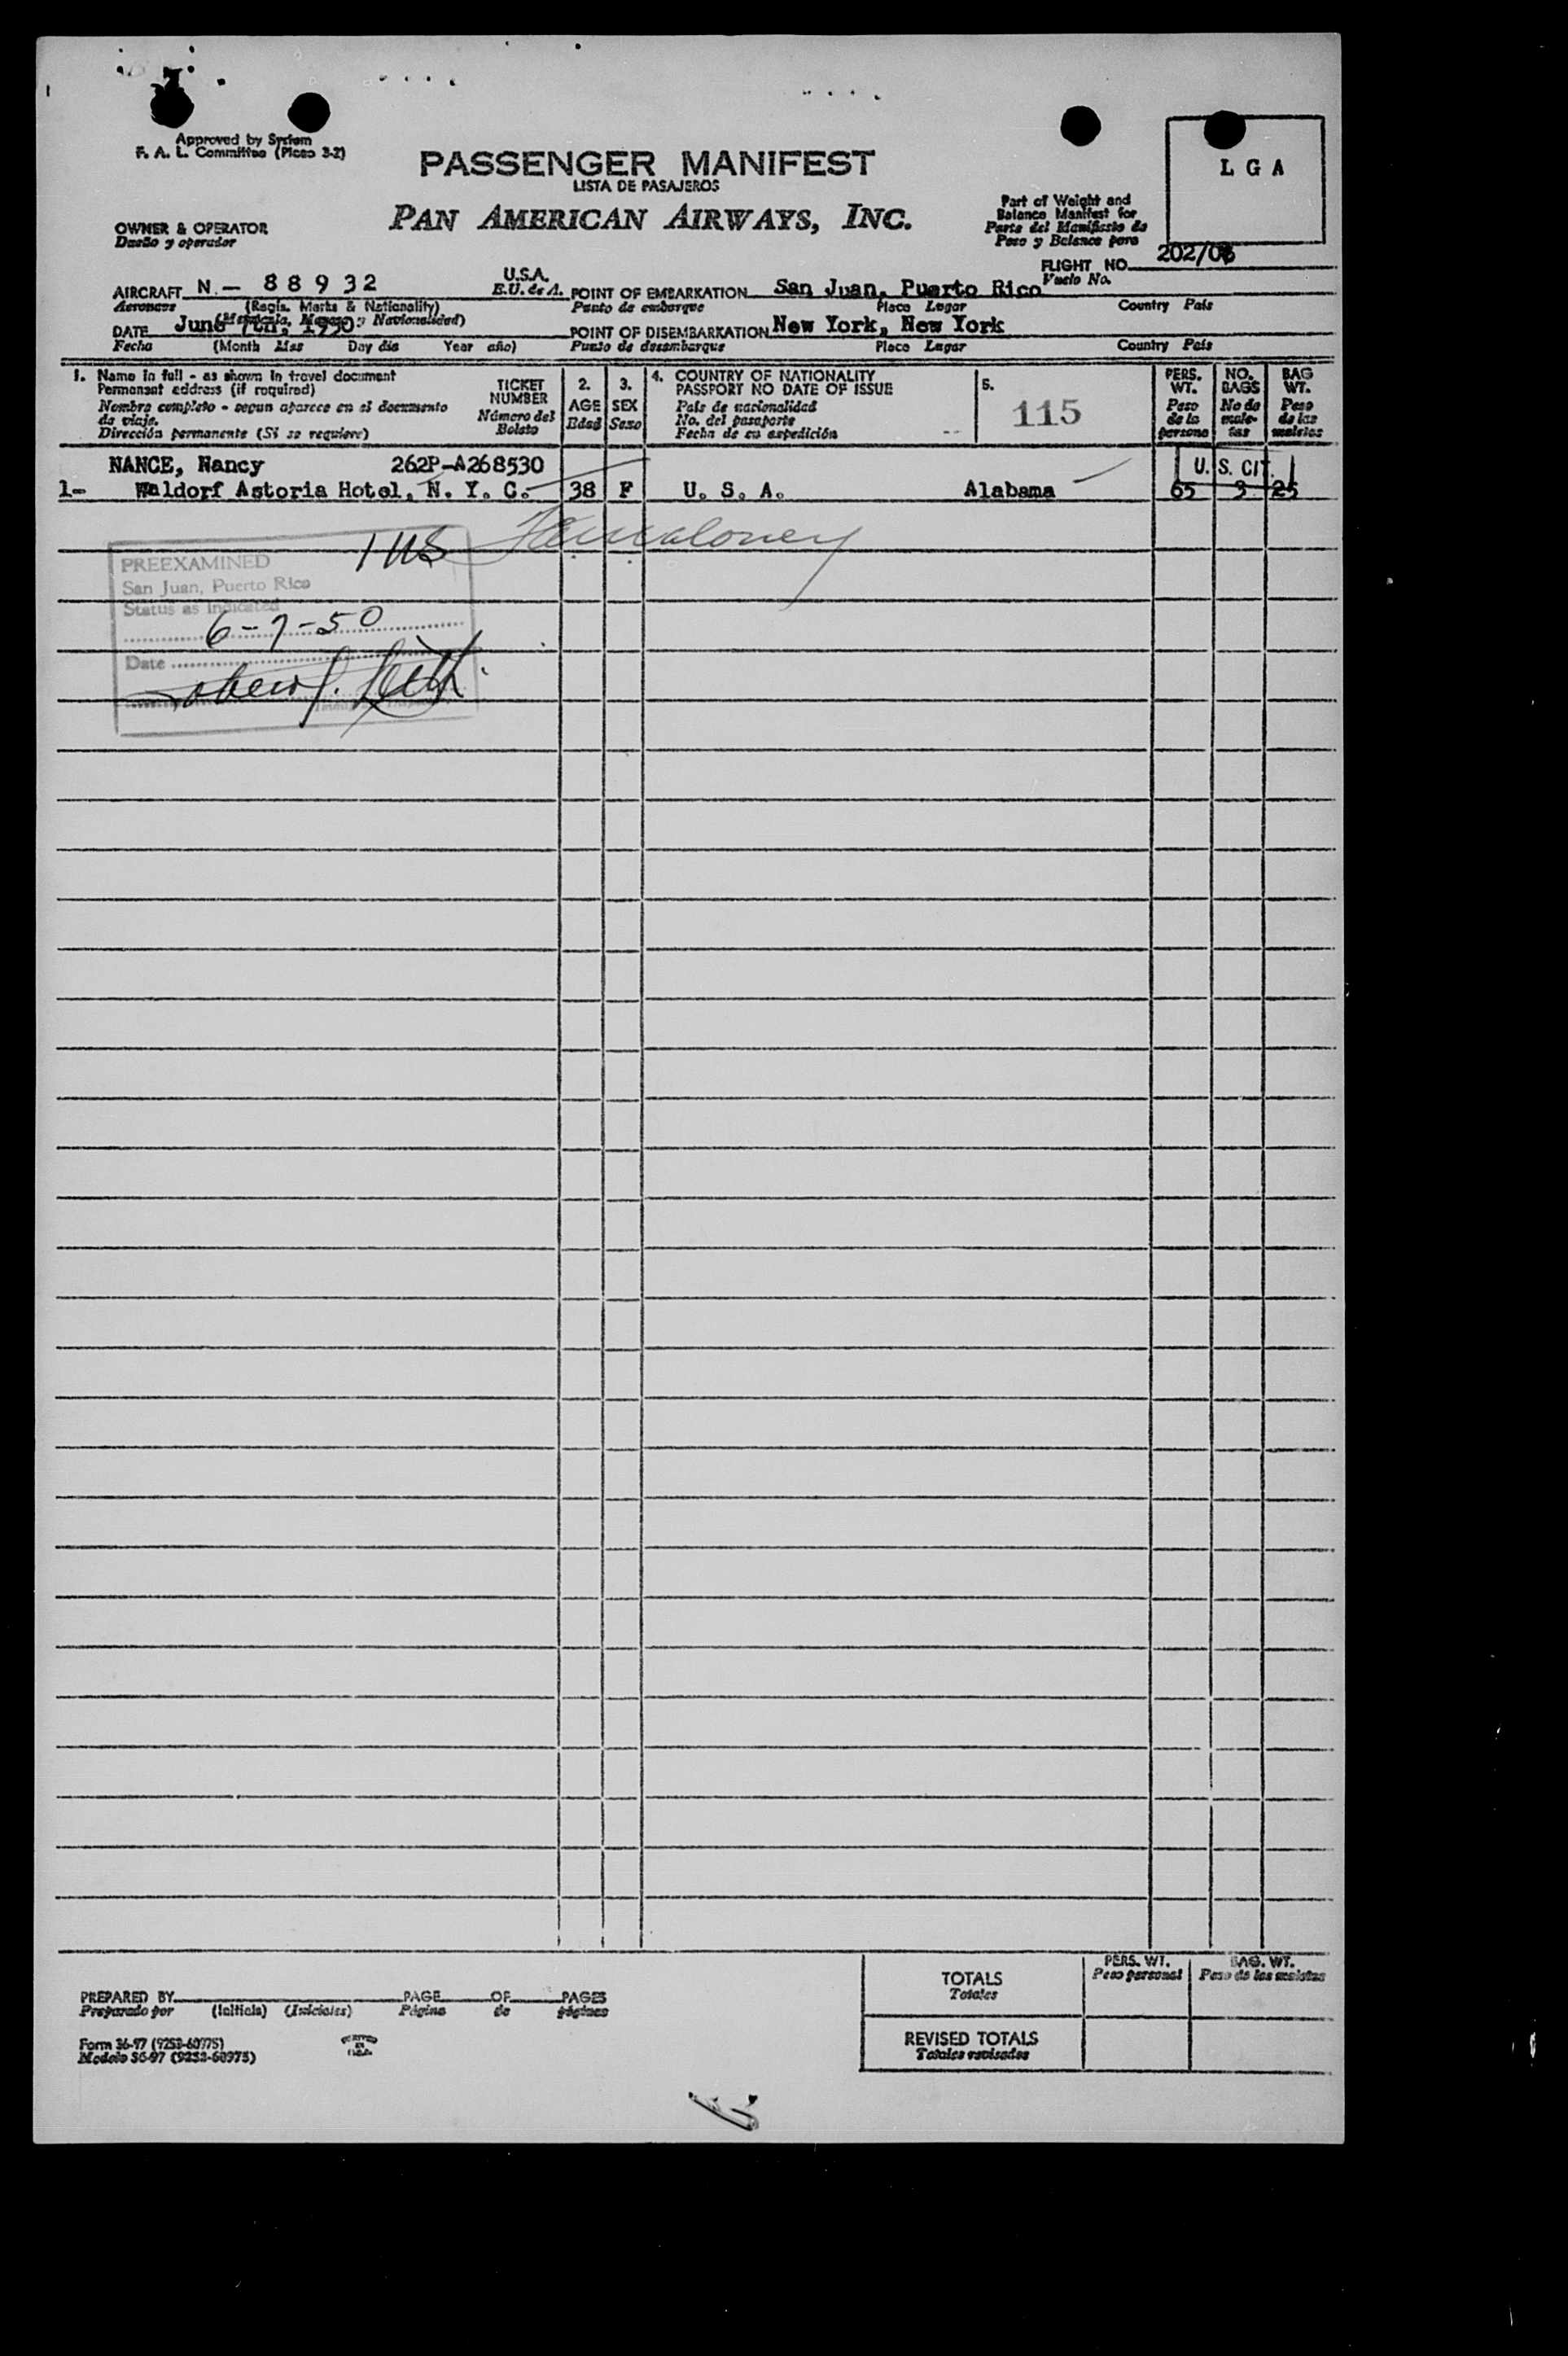 Approved by System
F. A. L. Committee (Picao 3-2)
PASSENGER MANIFEST
LISTA DE PASAJEROS
PAN AMERICAN AIRWAYS, INC.
L G A
Part of Weight and
Balance Manifest for
Parte del Manifiesto de
Peso y Balance para
OWNER & OPERATOR
Dueño y operador
FLIGHT NO. 202/0
Vuelo No.
AIRCRAFT N.- 88932 U.S.A.
E.U. de A.
Aeronave (Regis. Marks & Nationality)
(Matricula, Marcas y Nacionalidad)
POINT OF EMBARKATION San Juan, Puerto Rico
Punto de embarque Place Lugar Country País
DATE June 7th, 1950
Fecha (Month Mes Day dia Year año)
POINT OF DISEMBARKATION New York, New York
Punto de desembarque Place Lugar Country País
1. Name in full - as shown in travel document
Permanent address (if required)
Nombre completo - segun aparece en el documento
de viaje.
Dirección permanente (Si se requiere)
TICKET
NUMBER
Número del
Boleto
2.
AGE
Edad
3.
SEX
Sexo
4. COUNTRY OF NATIONALITY
PASSPORT NO DATE OF ISSUE
País de nacionalidad
No. del pasaporte
Fecha de su expedición
5.
115
PERS.
WT.
Peso
de la
persona
NO.
BAGS
No de
male-
tas
BAG
WT.
Peso
de las
maletas
NANCE, Nancy 262P-A268530 U. S. CIT.
1- Waldorf Astoria Hotel, N. Y. C. 38 F U. S. A. Alabama 65 3 25
1 US
PREEXAMINED
San Juan, Puerto Rico
Status as Indicated
6-7-50
Date
TOTALS
Totales
PERS. WT.
Peso personal
BAG. WT.
Peso de las maletas
REVISED TOTALS
Totales revisados
PREPARED BY PAGE OF PAGES
Preparado por (Initials) (Iniciales) Página de páginas
Form 36-97 (9253-60975)
Modelo 36-97 (9253-60975)
PRINTED
IN
U.S.A.